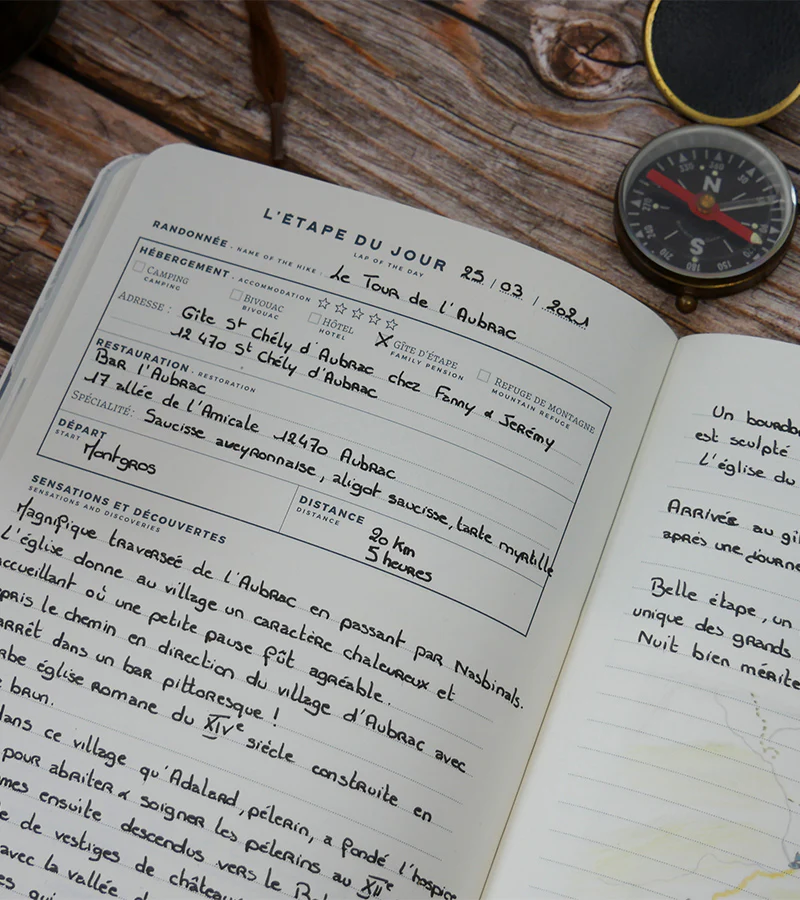 L'ÉTAPE DU JOUR 25 / 03 / 2021
LAP OF THE DAY
RANDONNÉE - NAME OF THE HIKE : Le Tour de l'Aubrac
HÉBERGEMENT - ACCOMMODATION ☆☆☆☆☆
CAMPING BIVOUAC HÔTEL GÎTE D'ÉTAPE REFUGE DE MONTAGNE
CAMPING BIVOUAC HOTEL FAMILY PENSION MOUNTAIN REFUGE
ADRESSE : Gîte St Chély d'Aubrac chez Fanny & Jérémy
12 470 St Chély d'Aubrac
RESTAURATION - RESTORATION
Bar l'Aubrac
17 allée de l'Amicale 12470 Aubrac
SPÉCIALITÉ : Saucisse aveyronnaise, aligot saucisse, tarte myrtille
DÉPART
START
Montgros
DISTANCE
DISTANCE
20 km
5 heures
SENSATIONS ET DÉCOUVERTES
SENSATIONS AND DISCOVERIES
Magnifique traversée de l'Aubrac en passant par Nasbinals.
L'église donne au village un caractère chaleureux et
accueillant où une petite pause fût agréable.
pris le chemin en direction du village d'Aubrac avec
arrêt dans un bar pittoresque !
rbe église romane du XIVe siècle construite en
brun.
dans ce village qu'Adalard, pélerin, a fondé l'hospice
pour abriter & soigner les pélerins au XIIe
mes ensuite descendus vers le
de vestiges de château
avec la vallée d
es qui
Un bourdo
est sculpté
l'église du
Arrivée au gî
après une journé
Belle étape, un
unique des grands
Nuit bien mérite
N
S